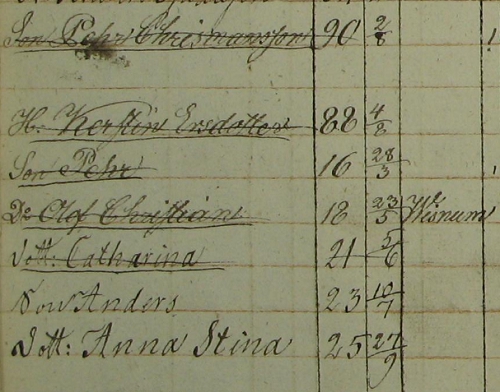 Son Pehr Chrismansson 90 2/8
H. Kerstin Ersdotter 88 4/8
Son Pehr 16 28/3
Do Olof Christian 18 23/5 Wisnum
Dott: Catharina 21 5/6
Son Anders 23 10/7
Dott: Anna Stina 25 27/9